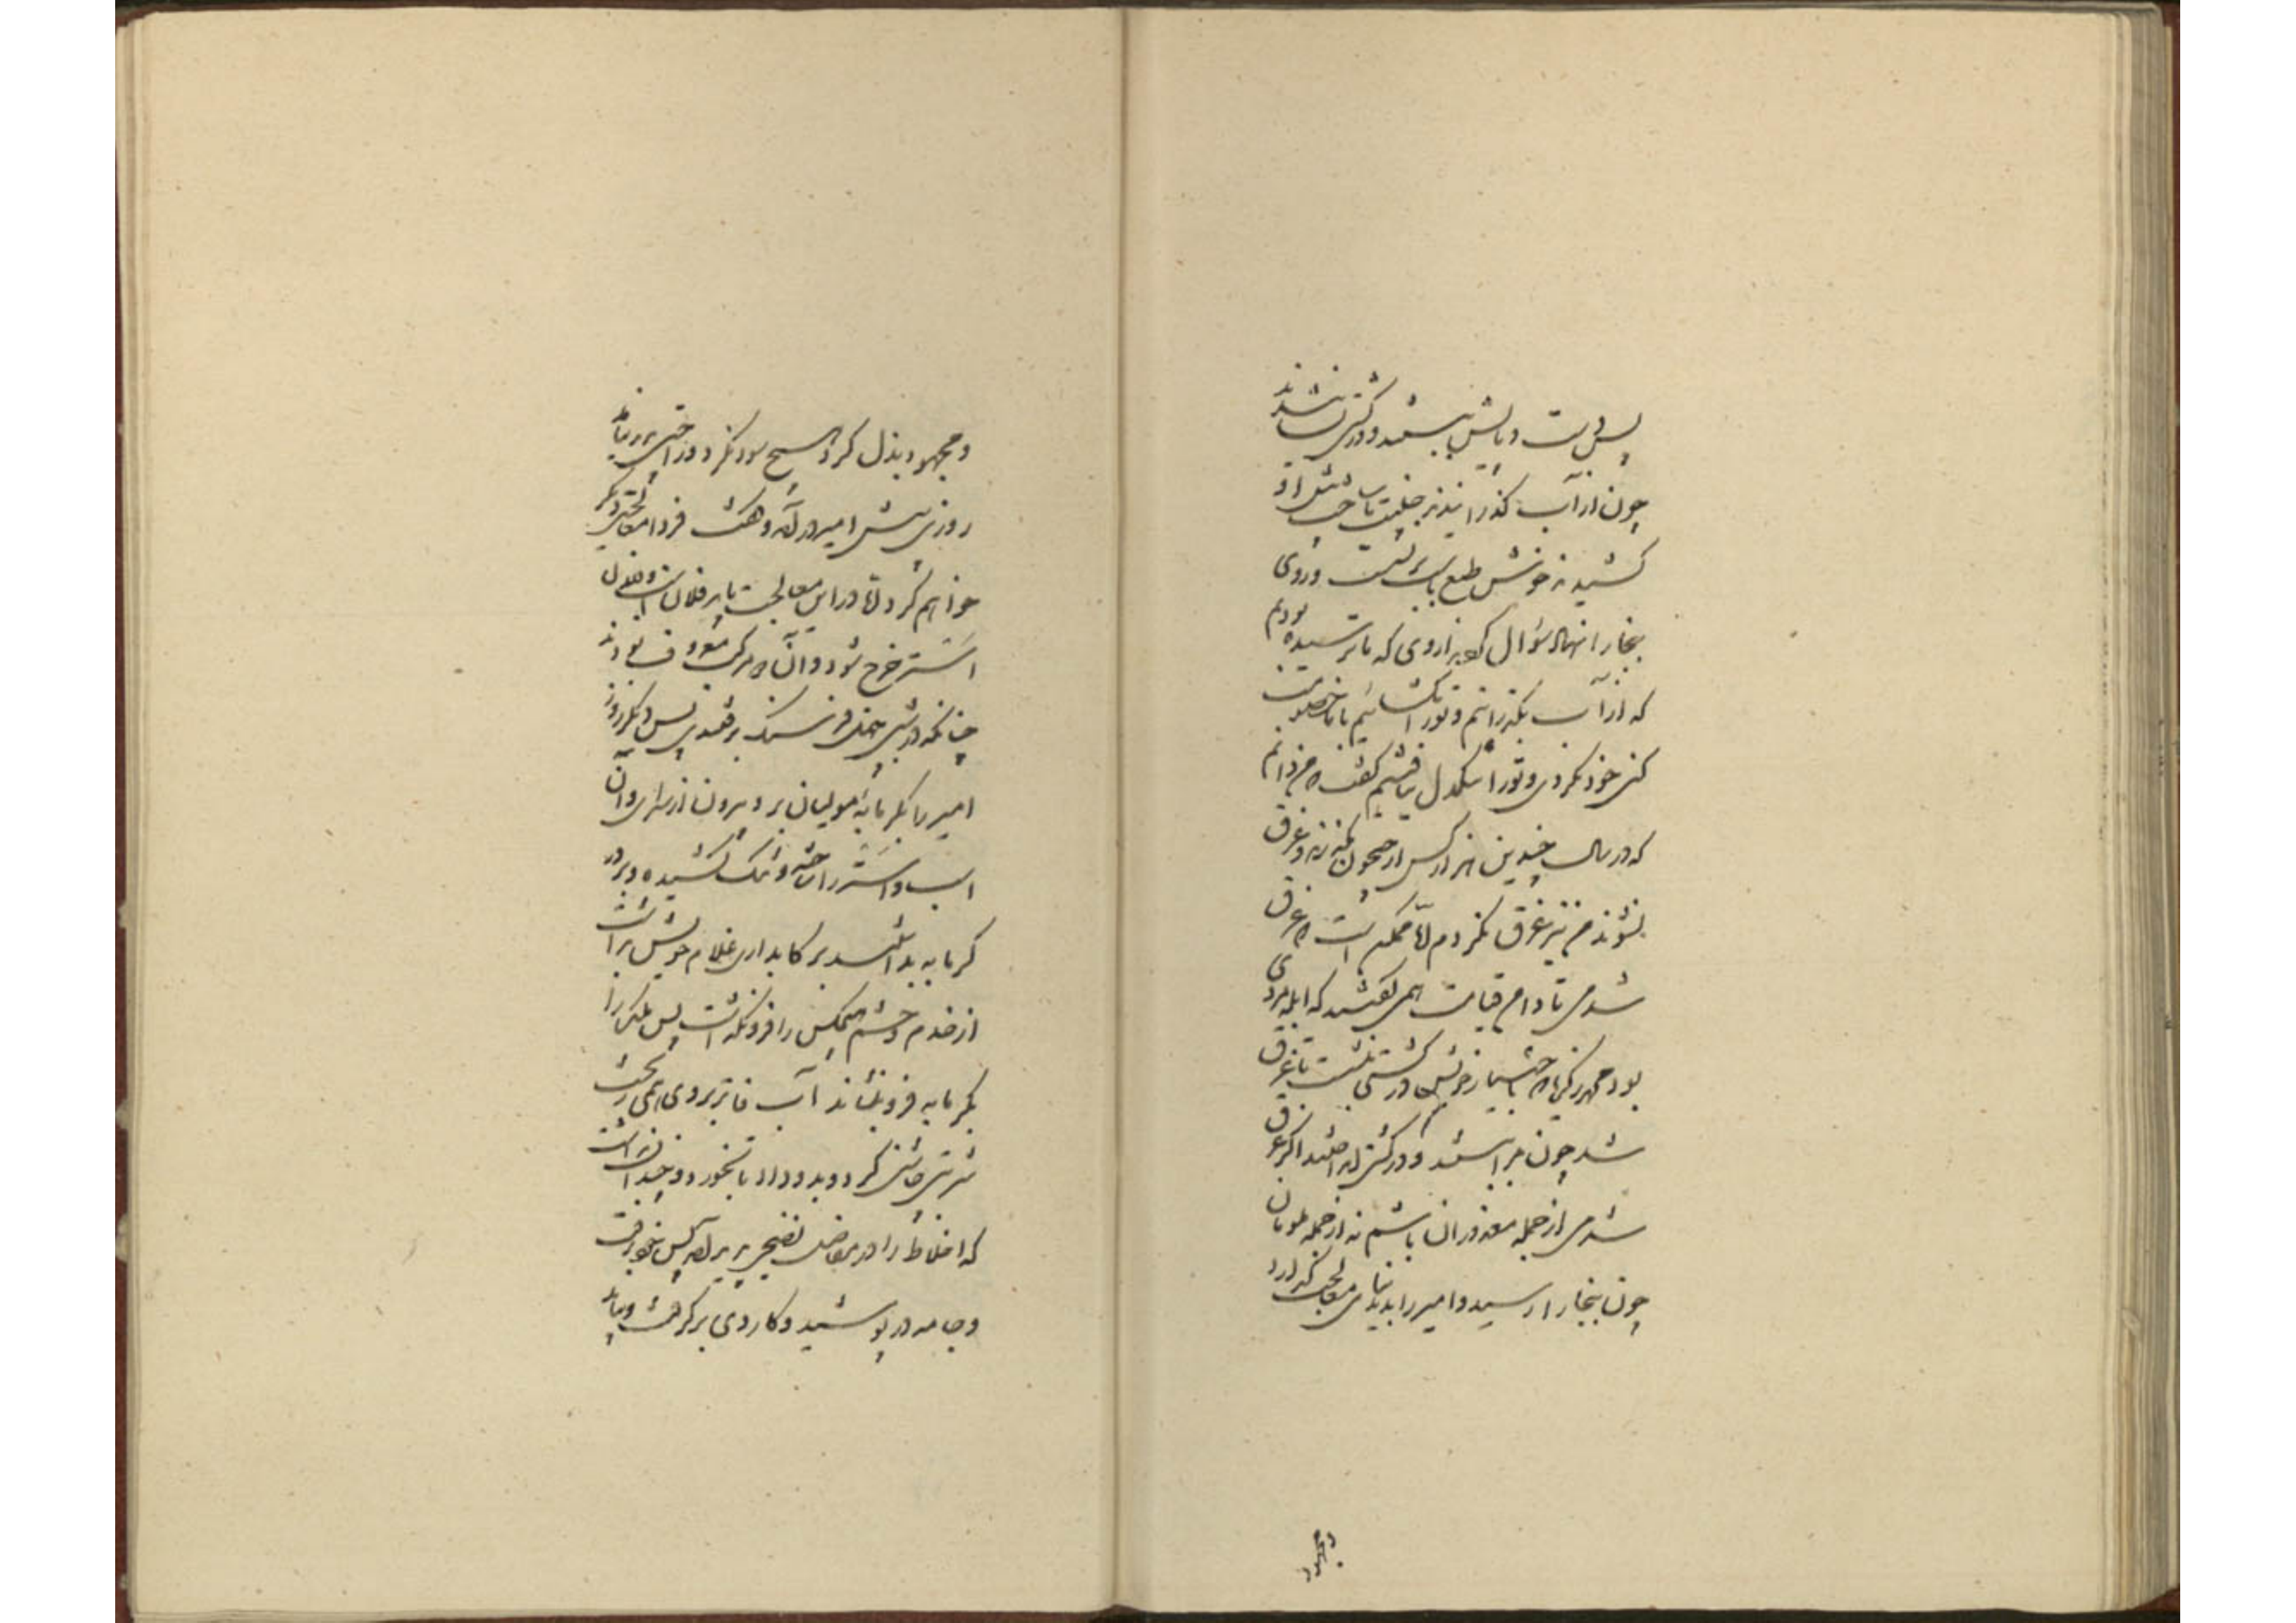 پس دست و پایش ببستند و در کشتی نشاندند
چون از آب گذرانیدند جنیبت با ساخت پیش او
کشیدند خوش طبع پای برنشست و روی
ببخارا نهاد سؤال کردند از وی که ما ترسیدیم
که از آب بگذرانیم و تو را بگشائیم با ما خصومت
کنی خود نکردی و تو را تنگدل نیافتیم گفت من دانم
که در سال چندین هزار کس از جیحون بگذرند و غرق
نشوند من نیز غرق نگردم اما ممکن است که غرق
شدمی تا دامن قیامت همی گفتند که ابله مردی
بود محمد زکریا که باختیار خویش در کشتی نشست تا غرق
شد چون مرا ببستند و در کشتی انداختند اگر غرق
شدمی از جمله معذوران باشم نه از جمله ملومان
چون ببخارا رسید و امیر را بدید بنای معالجت گذارد
ومجهود
و مجهود بذل کرد هیچ سود نکرد و راحتی پدید نیامد
روزی پیش امیر درآمد و گفت فردا معالجتی دیگر
خواهم کرد اما در این معالجت باید فلان اسب و فلان
استر خرج شود و آن دو مرکب معروف بودند
چنانکه در شبی چهل فرسنگ برفتندی پس دیگر روز
امیر را بگرمابه مولیان برد بیرون از سرای و آن
اسب و استر را ساخته و تنگ کشیده و بر در
گرمابه بداشتند و رکابداری غلام خویش را
از خدم و حشم هیچکس را فرو نگذاشت پس ملک را
بگرمابه فرو نشاند آب فاتر بر وی همی ریخت
شربتی چاشنی کرد و بدو داد تا بخورد و چندان بداشت
که اخلاط را در مفاصل نضجی پدید آمد پس خود برفت
و جامه در پوشید و کاردی برگرفت و بیامد